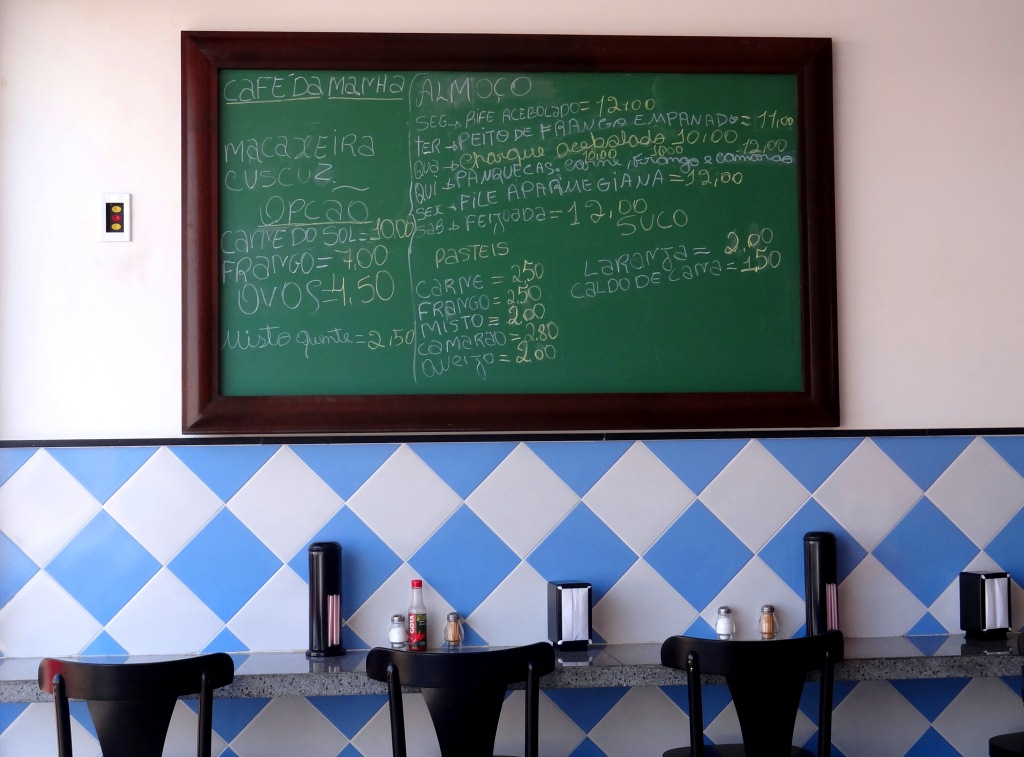 CAFÉ DA MANHA
MACAXEIRA
CUSCUZ.
OPCAO
CARNE DO SOL=1000
FRANGO=7,00
OVOS=4,50
Misto quente=2,50
ALMOÇO
SEG→ BIFE ACEBOLADO=12,00
TER→ PEITO DE FRANGO EMPANADO=11,00
QUA→ Charque acebolado 10,00
10,00 10,00 12,00
QUI→ PANQUECAS. carne, frango e camarao
SEX→ FILE APARMEGIANA=12,00
SAB→ FEIJOADA=12,00
SUCO
LARANJA= 2,00
CALDO DE CANA=1,50
PASTEIS
CARNE=2,50
FRANGO=2,50
MISTO=2,00
CAMARAO=2,80
QUEIJO=2,00
GOTA